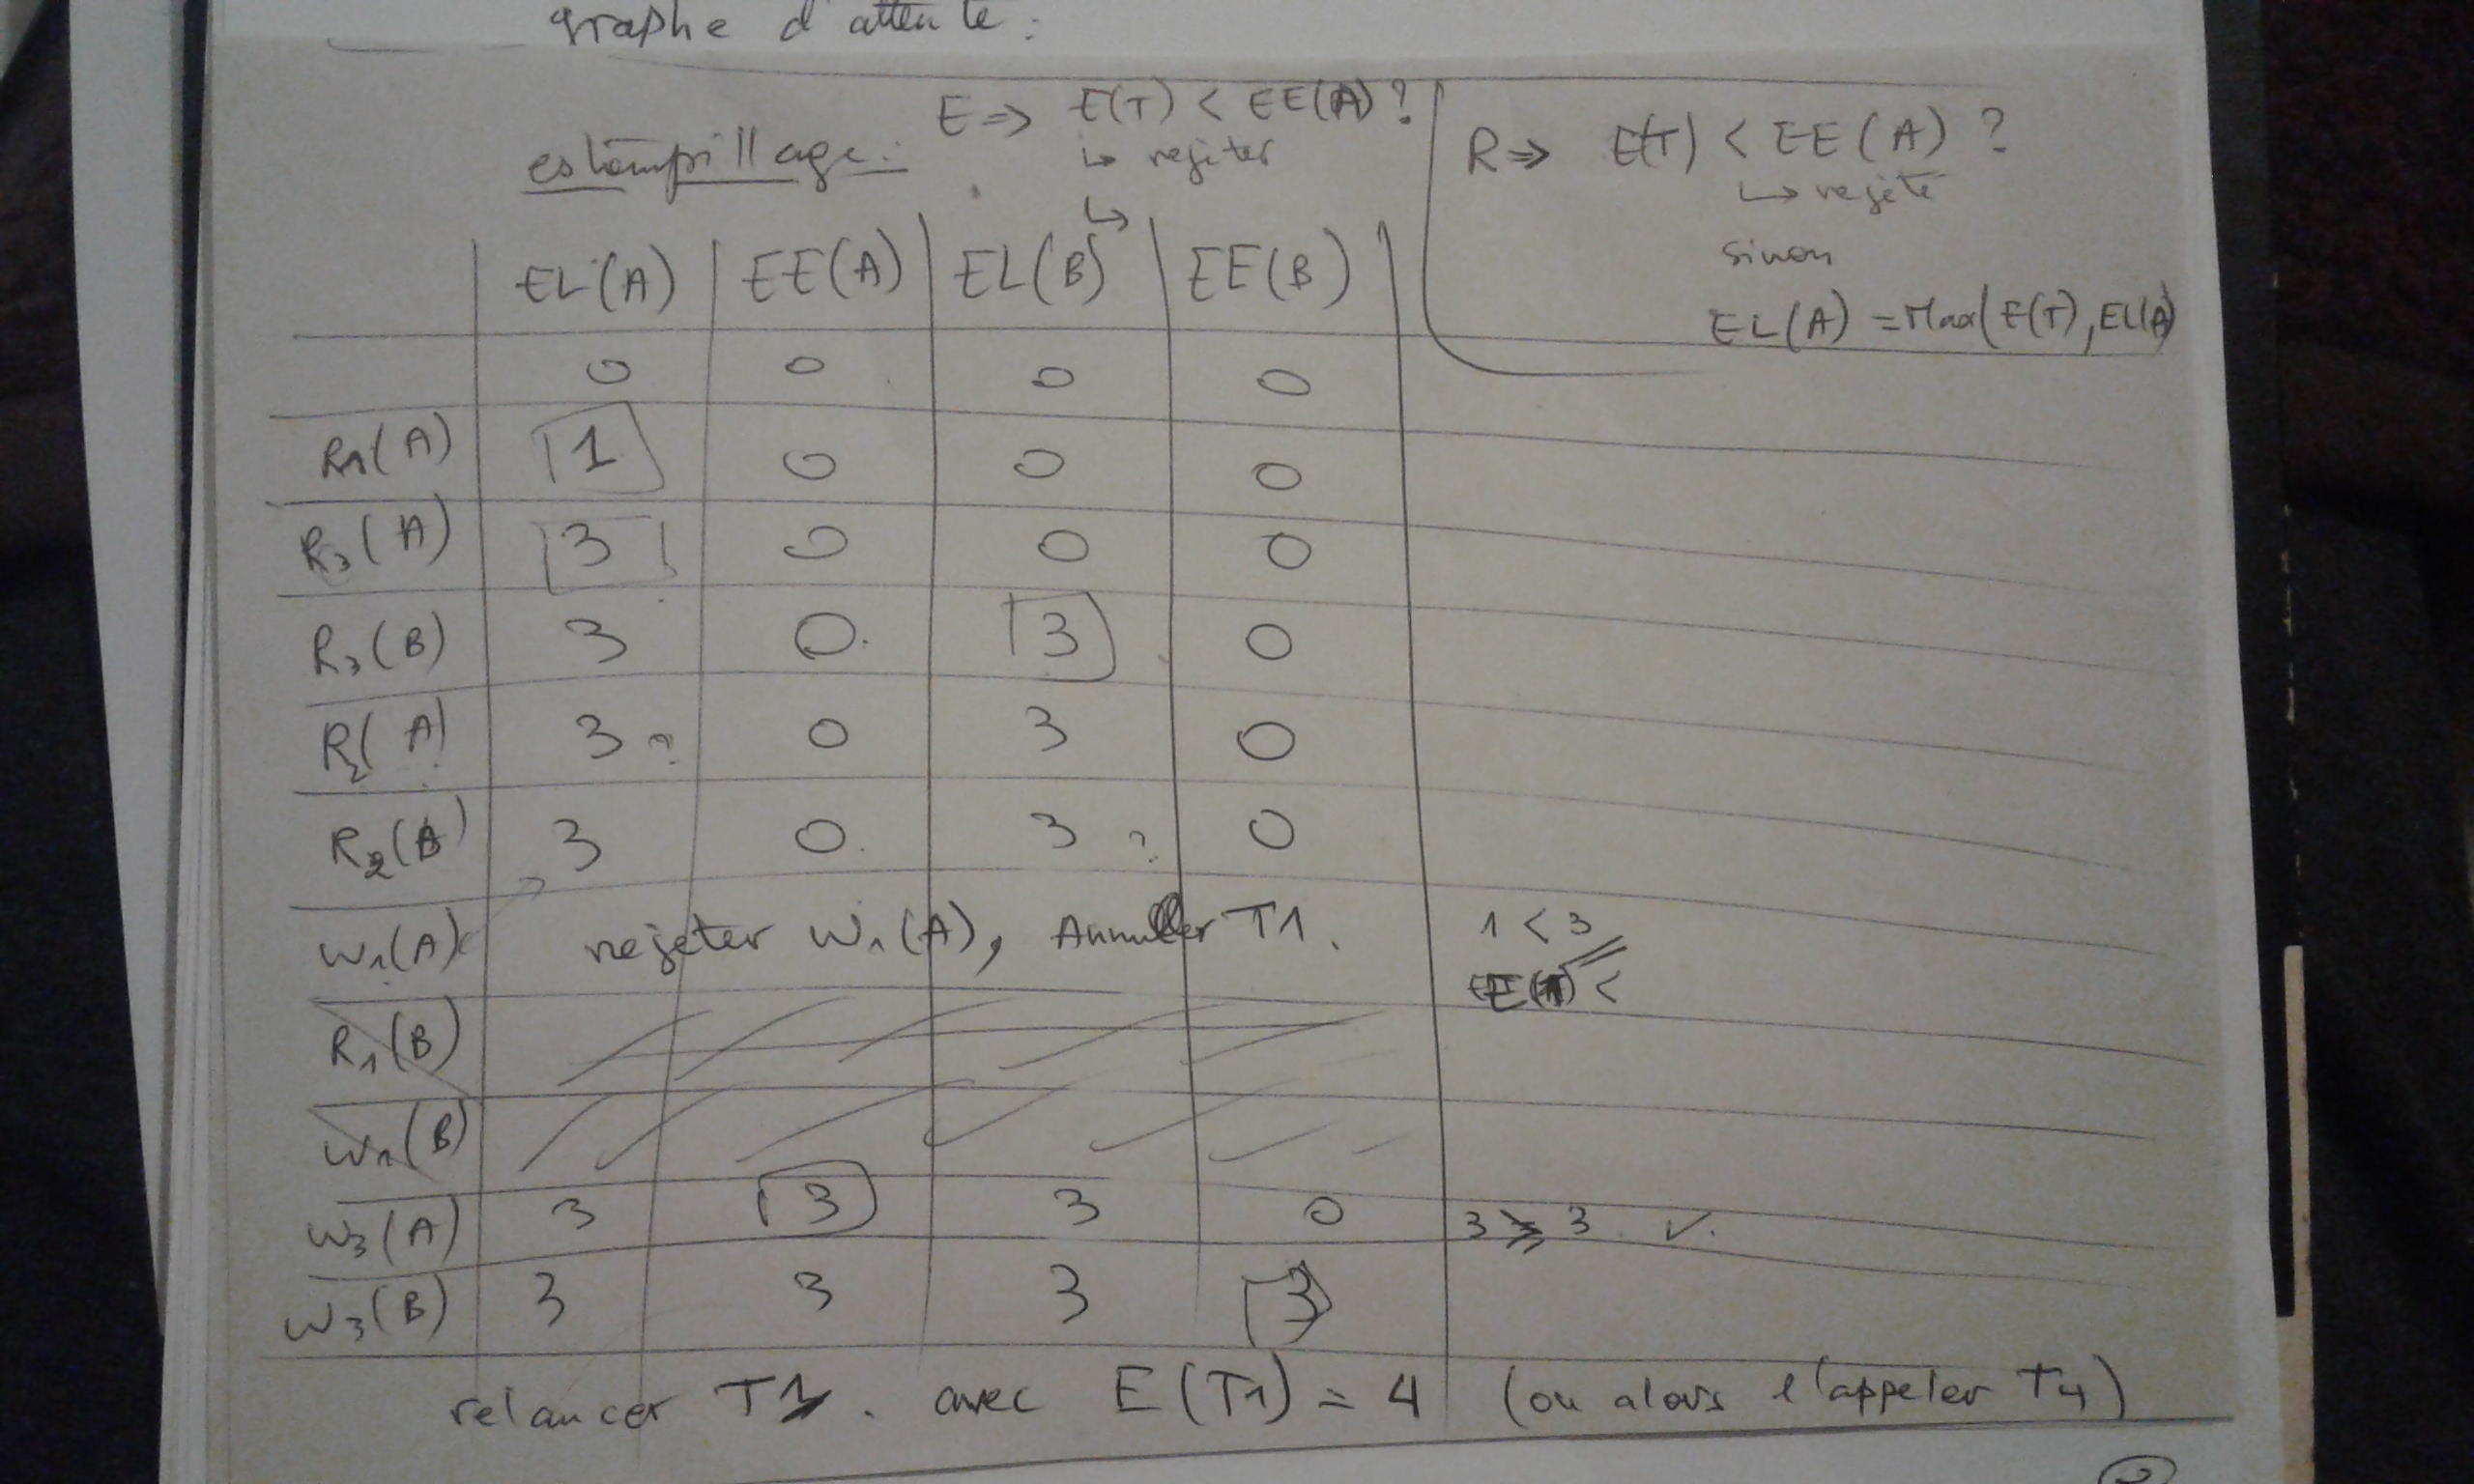 graphe d'attente :
estampillage :
E => E(T) < EE(A) ?
↳ rejeter
↳
R => E(T) < EE(A) ?
↳ rejeté
sinon
EL(A) = Max(E(T), EL(A)
EL(A) EE(A) EL(B) EE(B)
0 0 0 0
R1(A) 1 0 0 0
R3(A) 3 0 0 0
R3(B) 3 0 3 0
R2(A) 3 ? 0 3 0
R2(B) 3 0 3 ? 0
W1(A) rejeter W1(A), Annuler T1. 1 < 3
E(T) <
R1(B)
W1(B)
W3(A) 3 3 3 0 3 ≥ 3 ✓.
W3(B) 3 3 3 3
relancer T1. avec E(T1) = 4 (ou alors l'appeler T4)